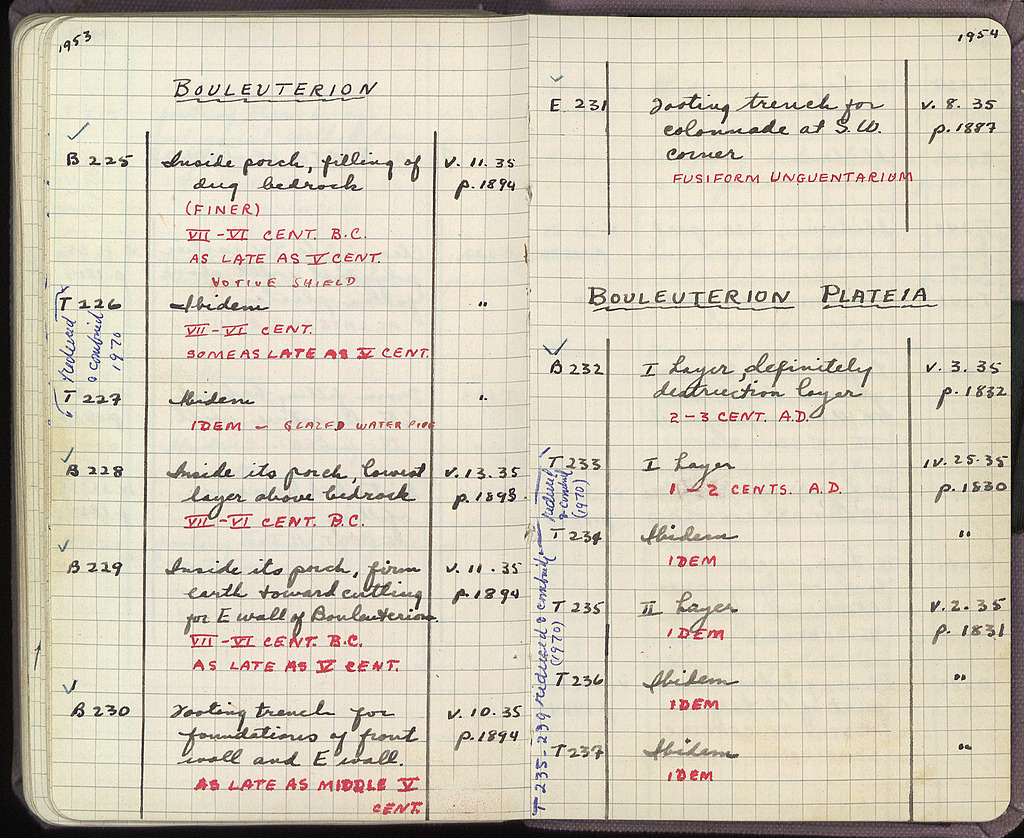 1953
BOULEUTERION
B 225 Inside porch, filling of V. 11. 35
dug bedrock p. 1894
(FINER)
VII-VI CENT. B.C.
AS LATE AS V CENT.
VOTIVE SHIELD
T 226 Ibidem "
VII-VI CENT.
SOME AS LATE AS V CENT.
reduced
& combined
1970
T 227 Ibidem "
IDEM - GLAZED WATER PIPE
B 228 Inside its porch, lowest V. 13. 35
layer above bedrock p. 1898
VII-VI CENT. B.C.
B 229 Inside its porch, firm V. 11. 35
earth toward cutting p. 1894
for E wall of Bouleuterion.
VII-VI CENT. B.C.
AS LATE AS V CENT.
B 230 Footing trench for V. 10. 35
foundations of front p. 1894
wall and E wall.
AS LATE AS MIDDLE V
CENT.
1954
E 231 Footing trench for V. 8. 35
colonnade at S.W. p. 1887
corner
FUSIFORM UNGUENTARIUM
BOULEUTERION PLATEIA
B 232 I Layer, definitely V. 3. 35
destruction layer p. 1832
2-3 CENT. A.D.
T 233 I Layer IV. 25. 35
1-2 CENTS. A.D. p. 1830
reduced
& combined
(1970)
T 234 Ibidem "
IDEM
T 235 II Layer V. 2. 35
IDEM p. 1831
T 236 Ibidem "
IDEM
T 237 Ibidem "
IDEM
T 235-239 reduced & combined
(1970)